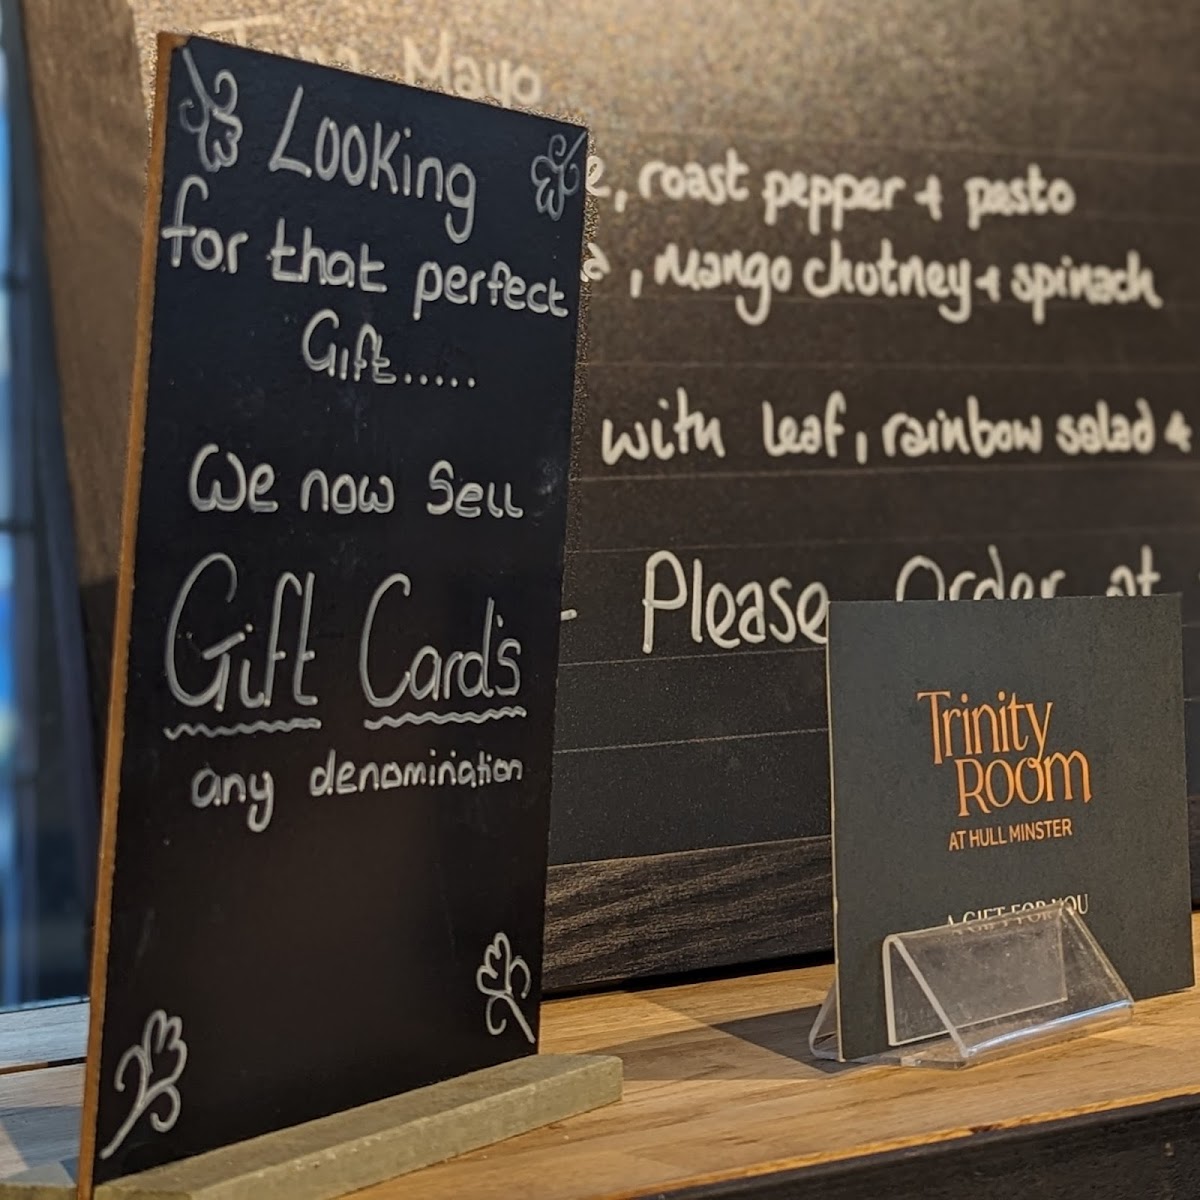 Looking
for that perfect
Gift.....
We now Sell
Gift Card's
any denomination
Mayo
, roast pepper + pesto
, mango chutney + spinach
with leaf, rainbow salad +
- Please Order at
Trinity
ROOM
AT HULL MINSTER
A GIFT FOR YOU